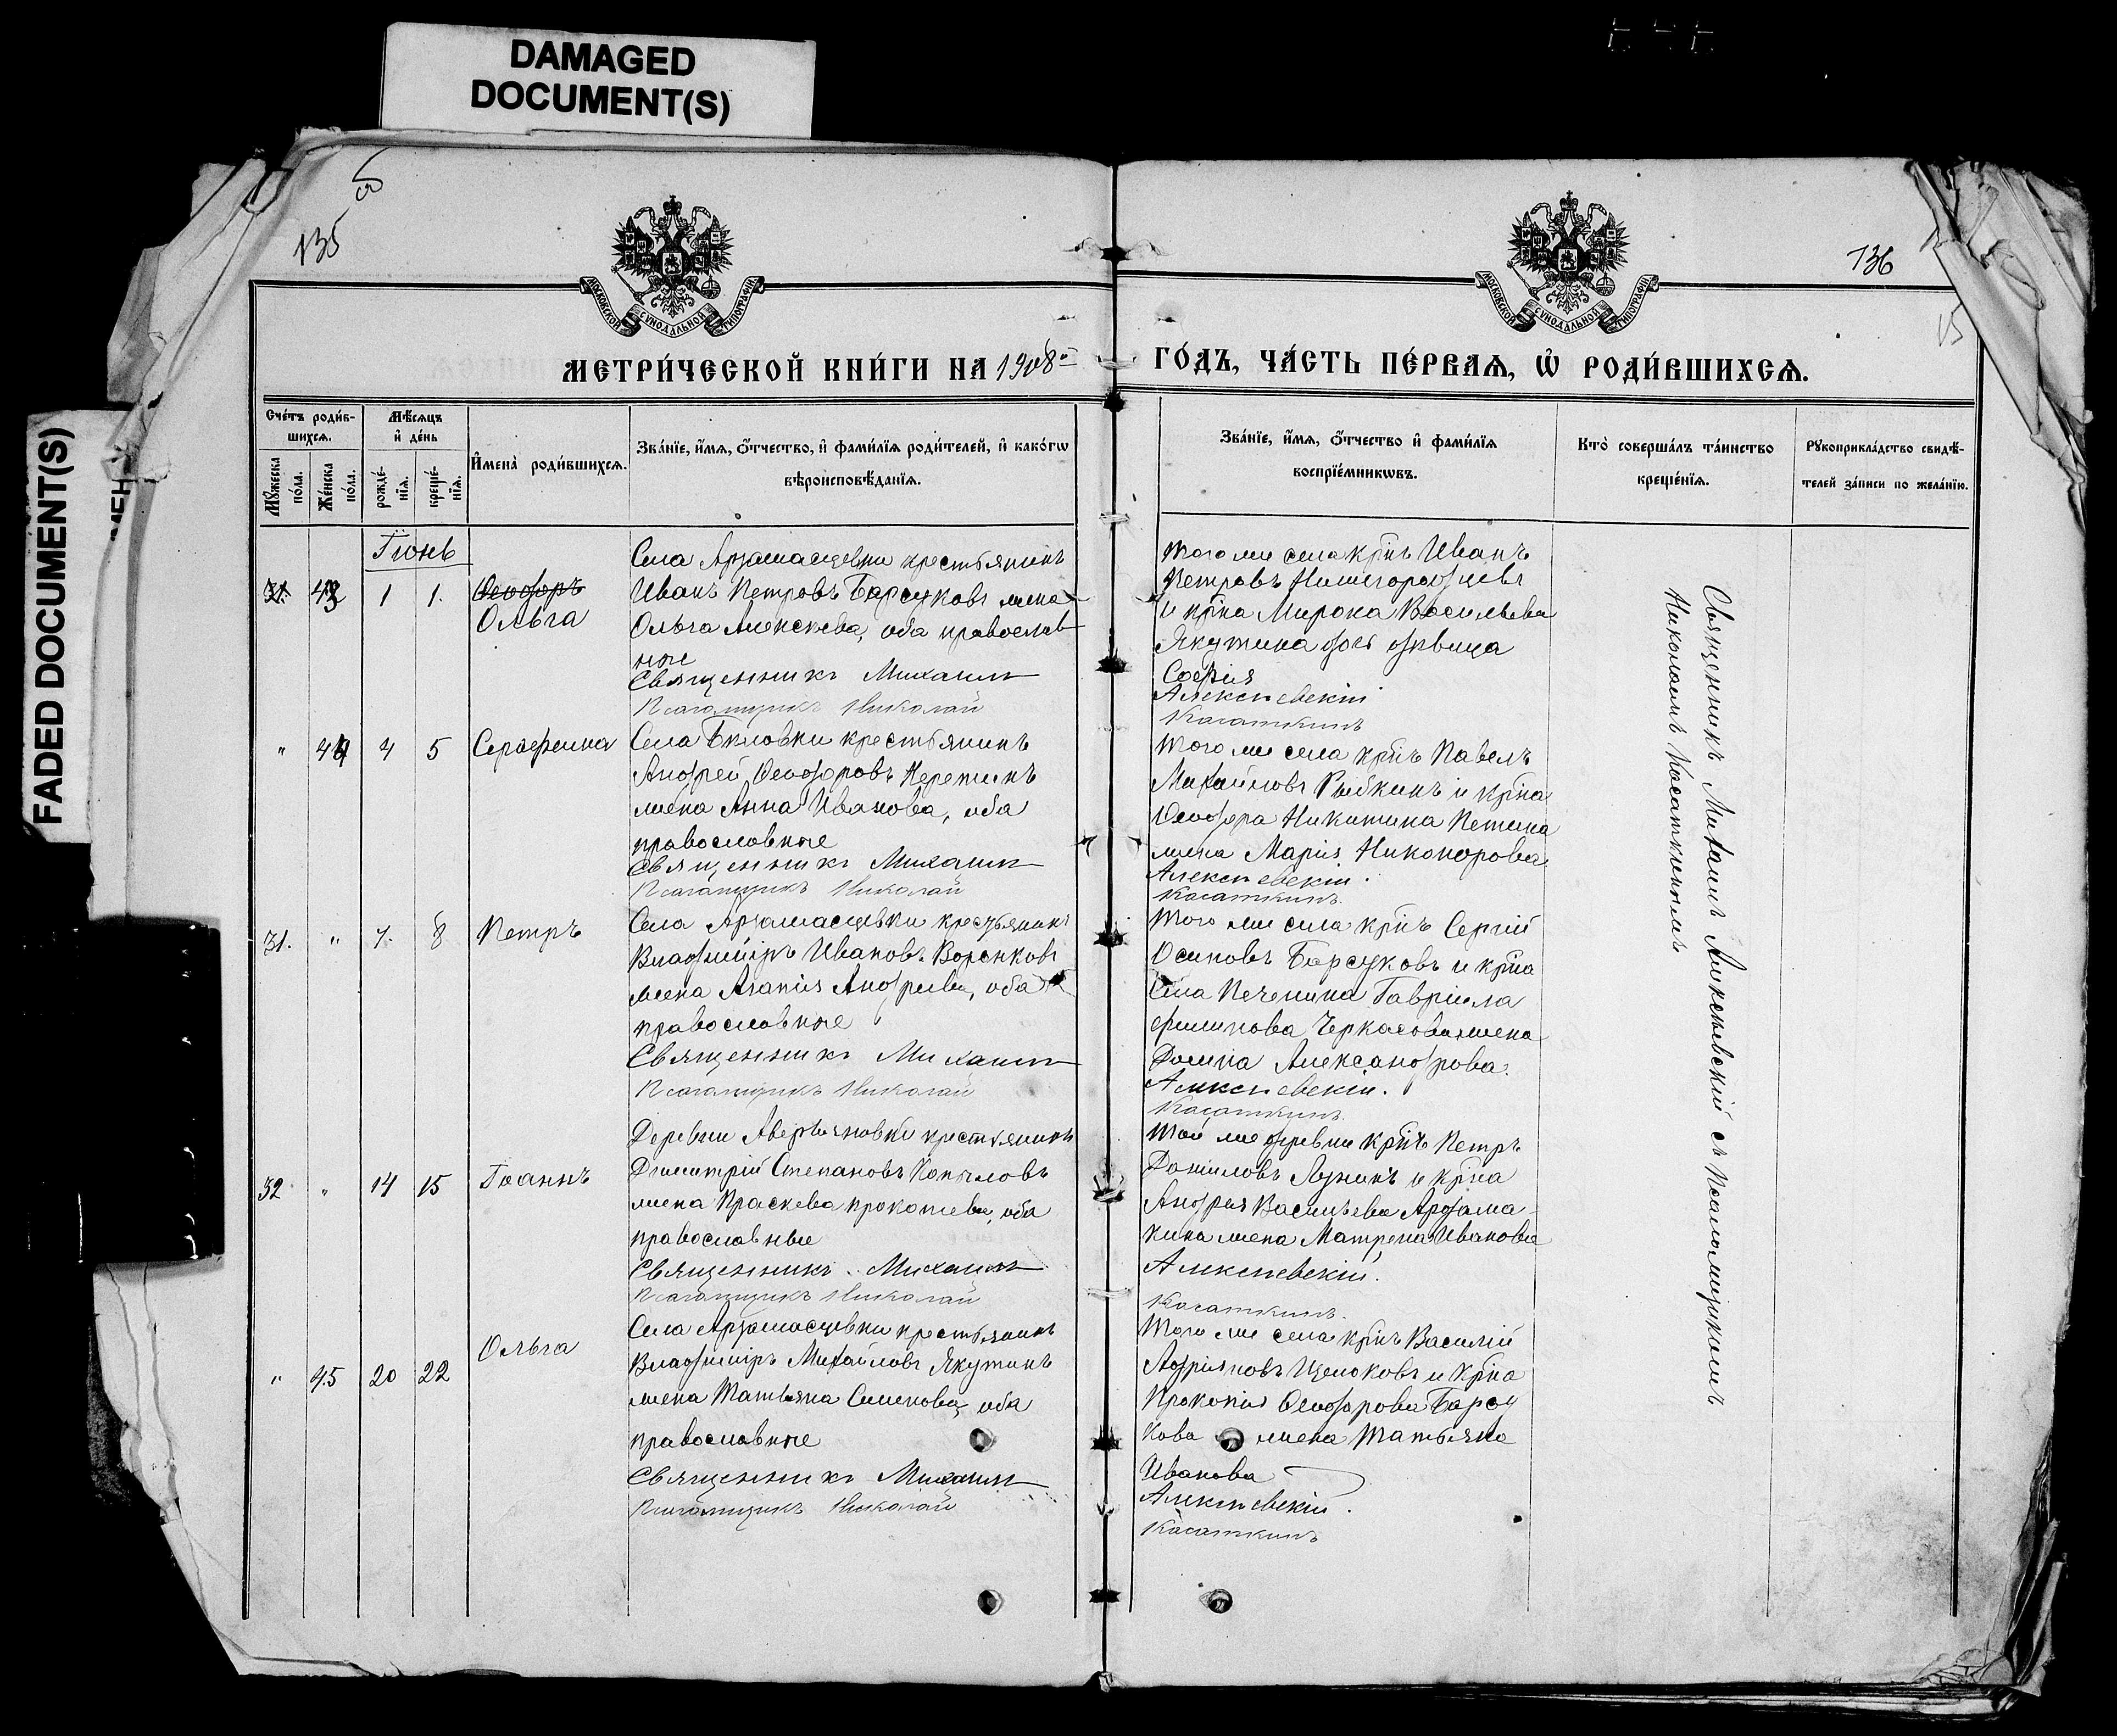 DAMAGED
DOCUMENT(S)
FADED DOCUMENT(S)
135
136
15
МОСКОВСКОЙ СѴНОДАЛЬНОЙ ТИПОГРАФІИ
МОСКОВСКОЙ СѴНОДАЛЬНОЙ ТИПОГРАФІИ
МЕТРИ́ЧЕСКОЙ КНИ́ГИ НА 1908й
ГО́ДЪ, ЧА́СТЬ ПЕ́РВАѦ, Ѽ РОДИ́ВШИХСѦ.
Сче́тъ роди́в-
шихсѧ.
Мꙋ́жеска
по́ла.
Же́нска
по́ла.
Мѣ́сѧцъ
и҆ де́нь
рожде́-
нїѧ.
креще́-
нїѧ.
И҆мена̀ роди́вшихсѧ.
Зва́нїе, и҆́мѧ, ѻ҆́тчество, и҆ фами́лїѧ роди́телей, и҆ како́гѡ
вѣроисповѣ́данїѧ.
Зва́нїе, и҆́мѧ, ѻ҆́тчество и҆ фами́лїѧ
воспрїе́мникѡвъ.
Кто̀ соверша́лъ та́инство
креще́нїѧ.
Рꙋкоприкла́дство свидѣ́-
телей за́писи по жела́нїю.
Іюнь
31. 43 1 1. Ѳеодоръ
Ольга
Села Арзамасцевки крестьянинъ
Иванъ Петровъ Барсуковъ жена
Ольга Алексѣева, оба православ
ные
Священникъ Михаилъ
Псаломщикъ Николай
того же села крнъ Иванъ
Петровъ Нижегородцевъ
и крна Мирона Васильева
Якутина дочь дѣвица
Софія
Алексѣевскій
Касаткинъ
" 44 4 5 Серафима
Села Бѣловки крестьянинъ
Андрей Ѳеодоровъ Неретинъ
жена Анна Иванова, оба
православные
Священникъ Михаилъ
Псаломщикъ Николай
того же села крнъ Павелъ
Михайловъ Рыбкинъ и крна
Ѳеодора Никитина Петина
жена Марія Никонорова
Алексѣевскій.
Касаткинъ.
31. " 7. 8 Петръ
Села Арзамасцевки крестьянинъ
Владиміръ Ивановъ Воронковъ
жена Агапія Андреева, оба
православные
Священникъ Михаилъ
Псаломщикъ Николай
того же села крнъ Сергій
Осиповъ Барсуковъ и крна
села Печенина Гавріила
Филипова Черкасова жена
Домна Александрова.
Алексѣевскій.
Касаткинъ.
32 " 14 15 Іоаннъ
Деревни Аверьяновки крестьянинъ
Димитрій Степановъ Копыловъ
жена Праскева Прокопьева, оба
православные
Священникъ Михаилъ
Псаломщикъ Николай
той же деревни крнъ Петръ
Даниловъ Лузинъ и крна
Андрея Васильева Ардама-
кина жена Матрена Иванова
Алексѣевскій.
Касаткинъ.
" 45 20 22 Ольга
Села Арзамасцевки крестьянинъ
Владиміръ Михайловъ Якутинъ
жена Татьяна Семенова, оба
православные
Священникъ Михаилъ
Псаломщикъ Николай
того же села крнъ Василій
Андріяновъ Щелоковъ и крна
Прокопія Ѳеодорова Барсу
кова жена Татьяна
Иванова
Алексѣевскій.
Касаткинъ
Священникъ Михаилъ Алексѣевскій съ псаломщикомъ
Николаемъ Касаткинымъ